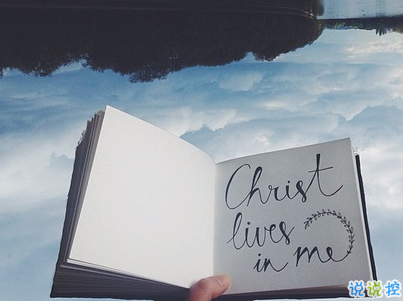 Christ
lives
in me
说说控